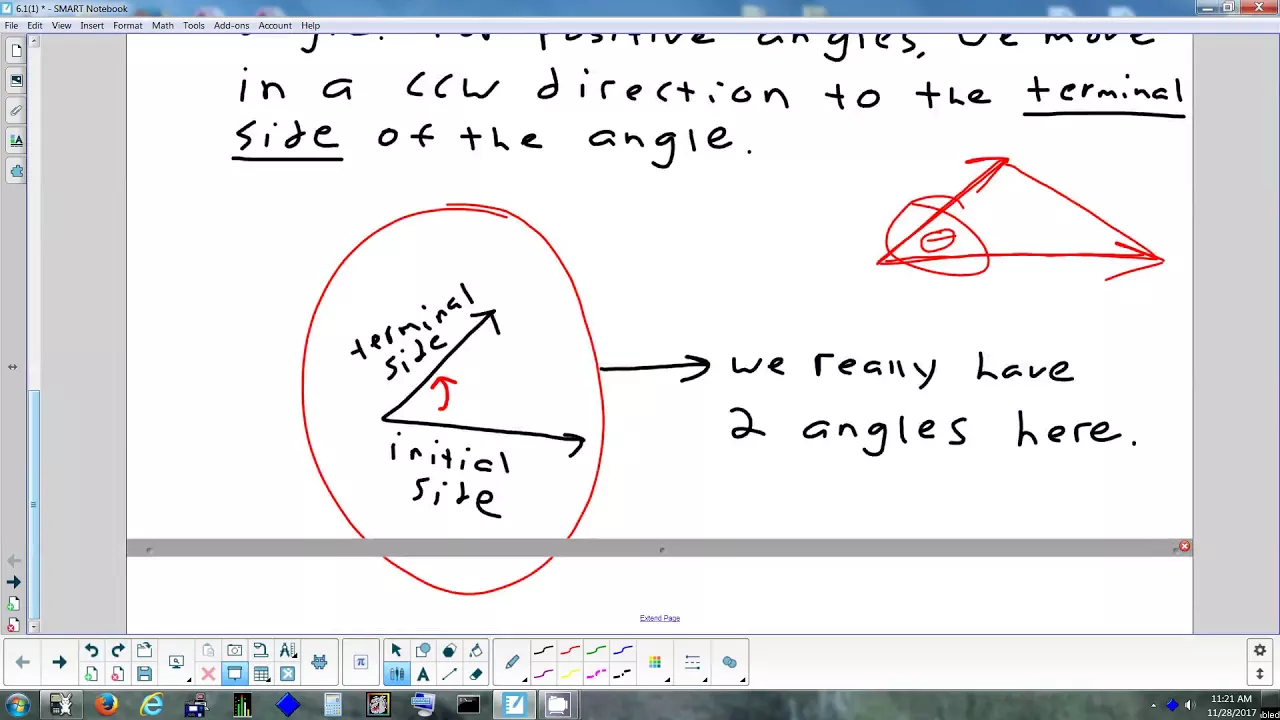 6.1(1) * - SMART Notebook
File Edit View Insert Format Math Tools Add-ons Account Help
angle. For positive angles, we move
in a CCW direction to the terminal
side of the angle.
θ
terminal
side
initial
side
we really have
2 angles here.
Extend Page
π
11:21 AM
11/28/2017